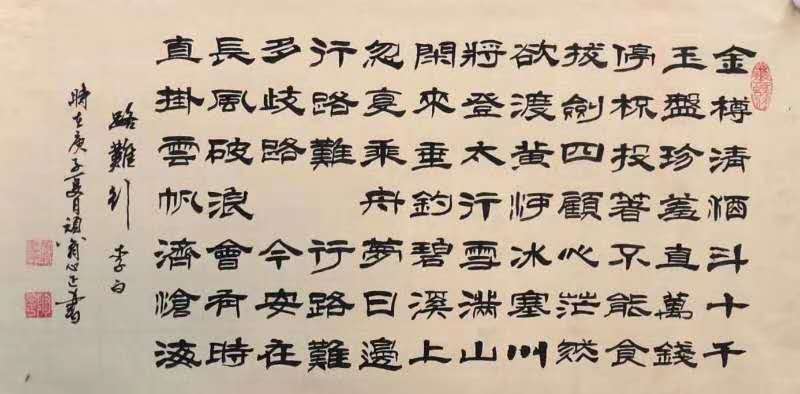 金樽清酒斗十千
玉盤珍羞直萬錢
停杯投著不能食
拔劍四顧心茫然
欲渡黄河冰塞川
將登太行雪滿山
閑來垂釣碧溪上
忽复乘舟夢日邊
行路難 行路難
多歧路 今安在
長風破浪會有時
直掛雲帆濟滄海
路難行 李白
時在庚子夏月 翁心正書